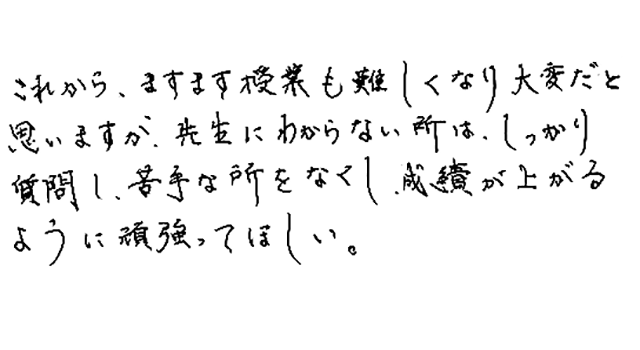 これから、ますます授業も難しくなり大変だと
思いますが、先生にわからない所は、しっかり
質問し、苦手な所をなくし、成績が上がる
ように頑強ってほしい。